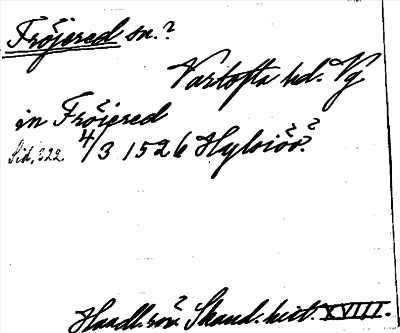 Fröjered sn.?
Vartofta hd. Vg
in Fröiered
Sid. 322. 4/3 1526
Handl. rör. Skand. hist. XVIII.